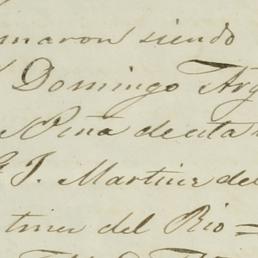 maron siendo
Domingo Arg
Piña de esta
J. Martinez del
tinez del Rio =